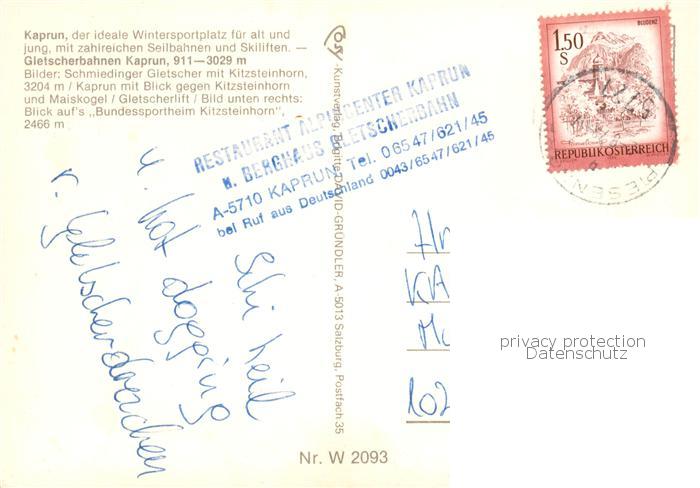 Kaprun, der ideale Wintersportplatz für alt und
jung, mit zahlreichen Seilbahnen und Skiliften. —
Gletscherbahnen Kaprun, 911—3029 m
Bilder: Schmiedinger Gletscher mit Kitzsteinhorn,
3204 m / Kaprun mit Blick gegen Kitzsteinhorn
und Maiskogel / Gletscherlift / Bild unten rechts:
Blick auf's „Bundessportheim Kitzsteinhorn",
2466 m
RESTAURANT ALPINCENTER KAPRUN
u. BERGHAUS GLETSCHERBAHN
A-5710 KAPRUN, Tel. 06547/621/45
bei Ruf aus Deutschland 0043/6547/621/45
Schi heil
u. hot dogging
v. Gletscherdrachen
Cosy-Kunstverlag, Brigitte DAVID-GRÜNDLER, A-5013 Salzburg, Postfach 35
BLUDENZ
1.50
S
REPUBLIK ÖSTERREICH
Hr
KA
102
privacy protection
Datenschutz
Nr. W 2093